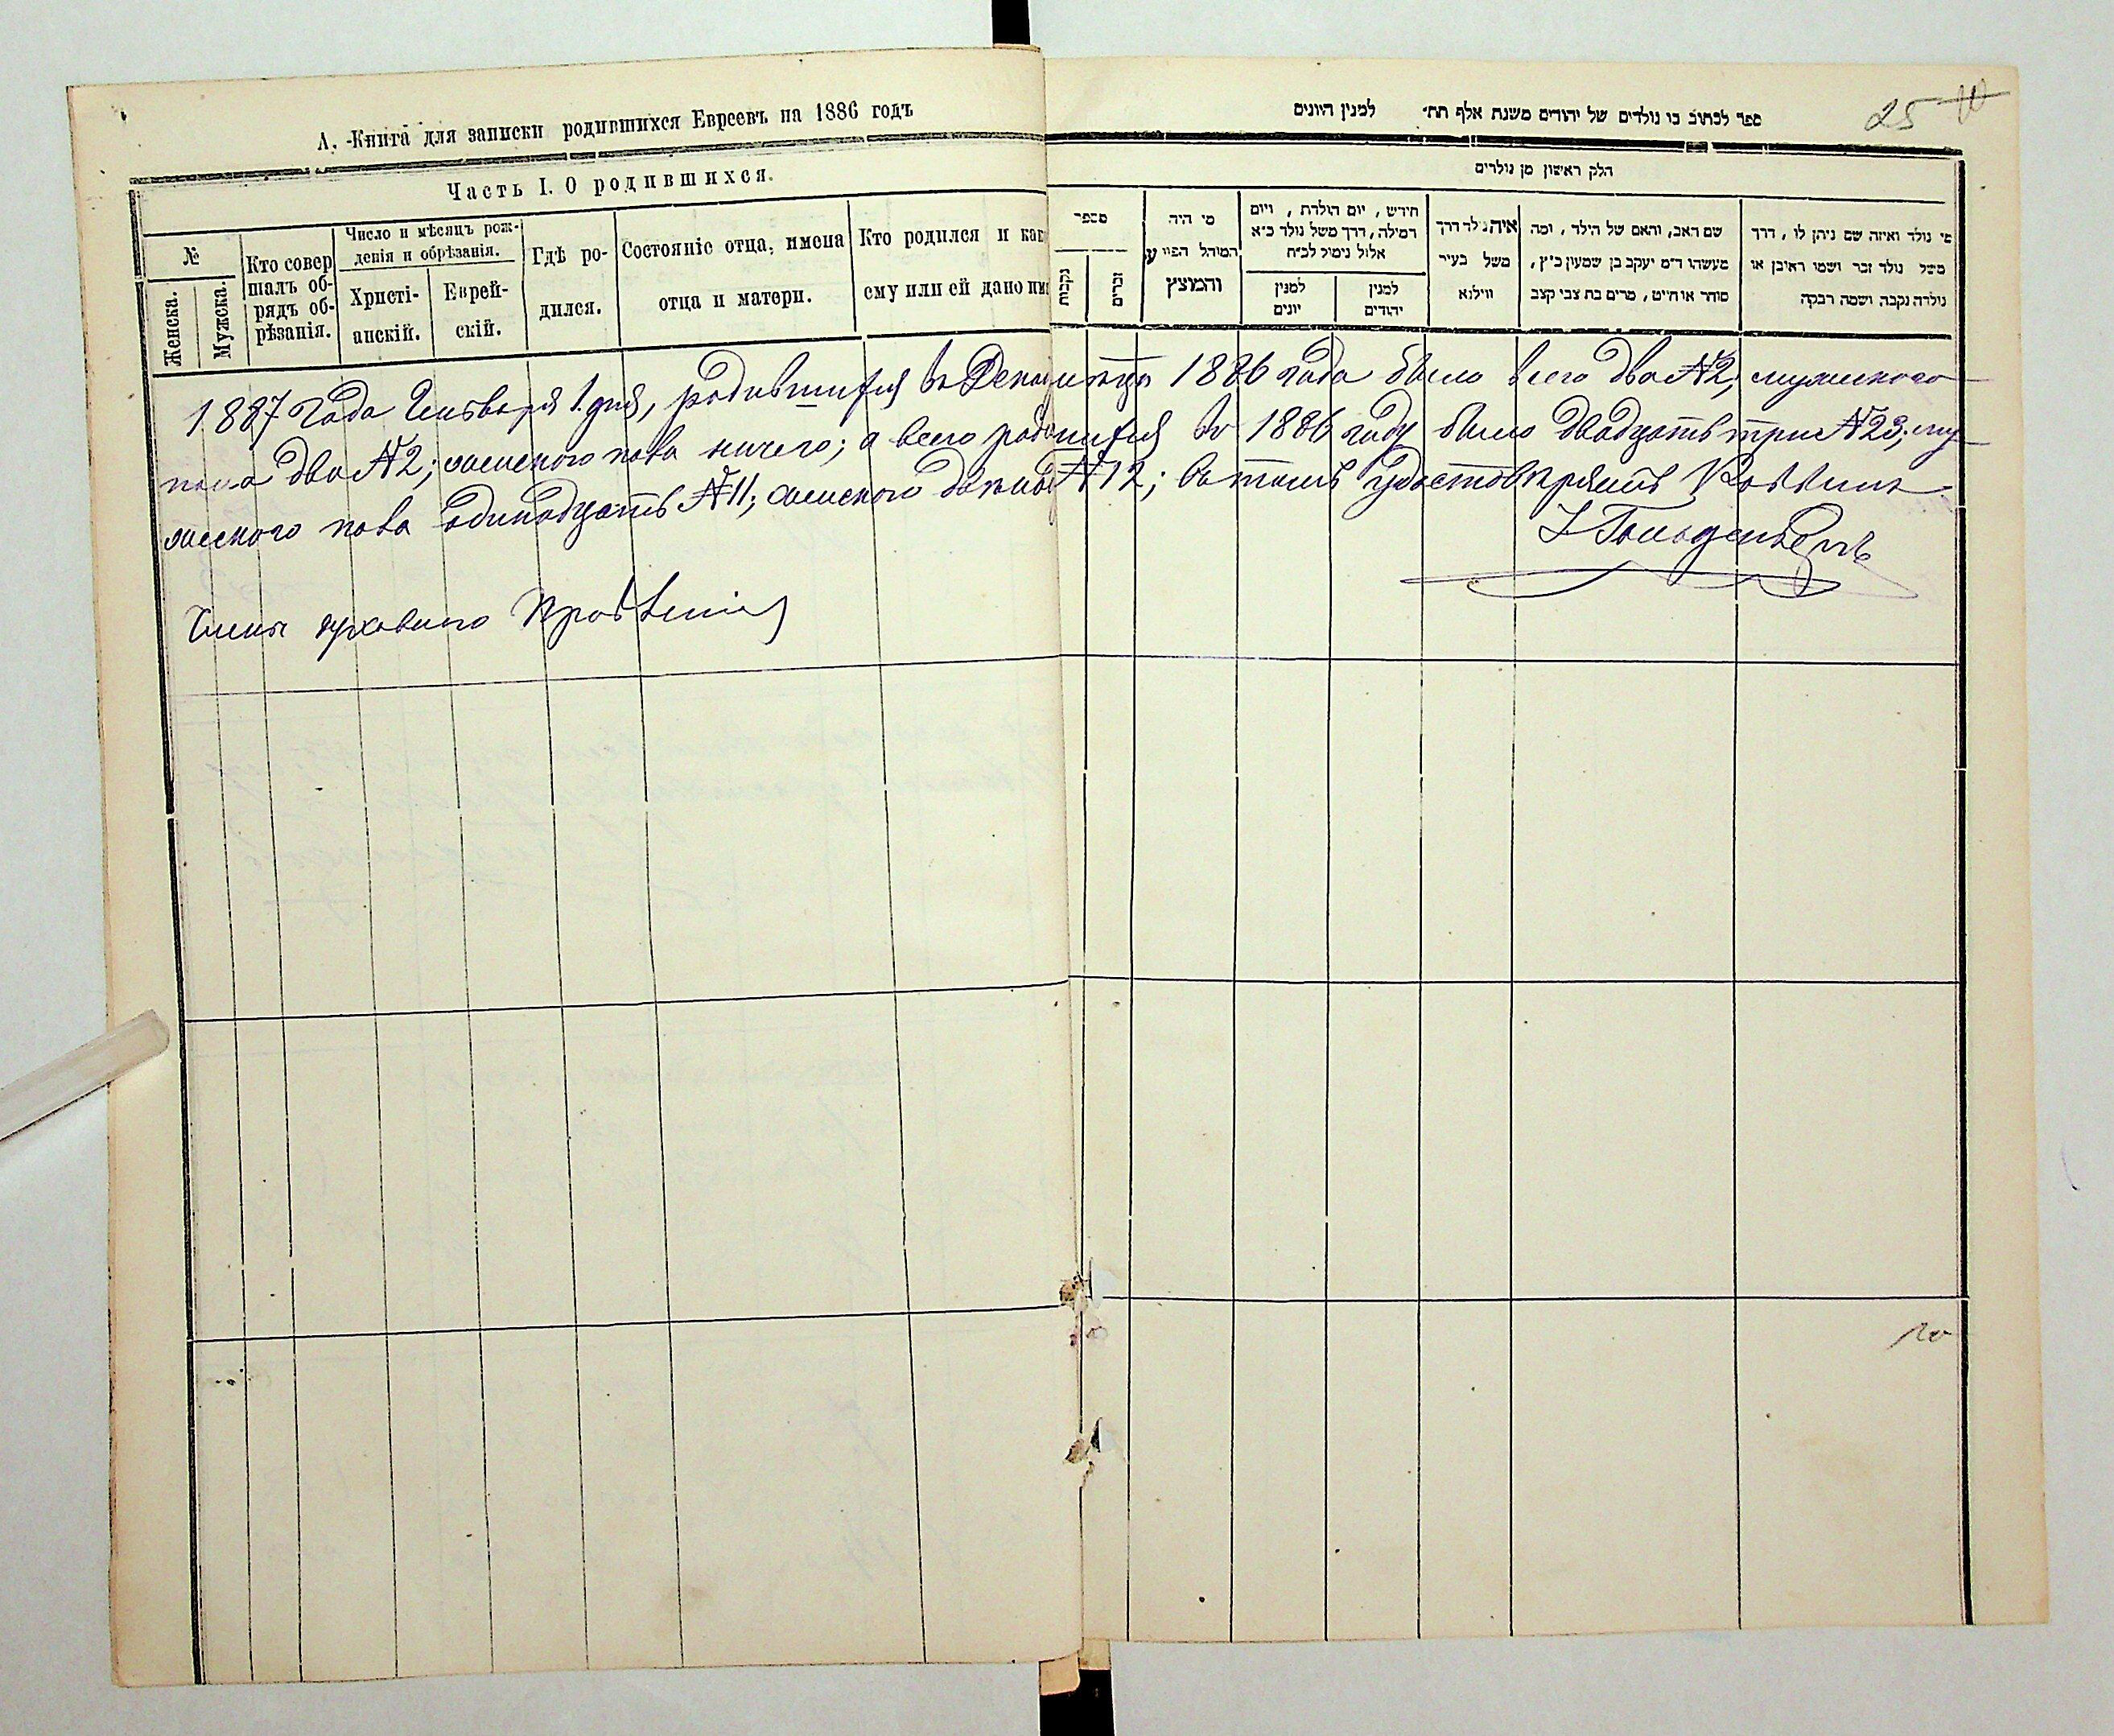 А. -Книга для записки родившихся Евреевъ на 1886 годъ
Часть I. О родившихся.
№
Женска.
Мужска.
Кто совер
шалъ об-
рядъ об-
рѣзанія.
Число и мѣсяцъ рож-
денія и обрѣзанія.
Христі-
анскій.
Еврей-
скій.
Гдѣ ро-
дился.
Состояніе отца, имена
отца и матери.
Кто родился и как
ему или ей дано им
ספר לכתוב בו נולדים של יהודים משנת אלף תת׳ למנין היונים
25 10
חלק ראשון מן נולדים
מספר
נקבות
זכרים
מי היה
המוהל הפורע
והמוצץ
חודש, יום הולדת, ויום
המילה, דרך משל נולד כ״א
אלול נימול לכ״ח
למנין
יונים
למנין
יהודים
איה נולד דרך
משל בעיר
ווילנא
שם האב, והאם של הילד, ומה
מעשהו ד״מ יעקב בן שמעון כ״ץ,
סוחר או חייט, מרים בת צבי קצב
מי נולד ואיזה שם ניתן לו, דרך
משל נולד זכר ושמו ראובן או
נולדה נקבה ושמה רבקה
1887 года Января 1. дня, родившихся въ Декабрѣ мѣсяцѣ 1886 года было всего два №2; мужескаго
пола два №2; женского пола ничего; а всего родившихся въ 1886 году было двадцать три №23; му-
жеского пола одинадцать №11; женского №12; въ томъ удостовѣряетъ Раввинъ
Гольденбергъ
Члены духовного Правленія